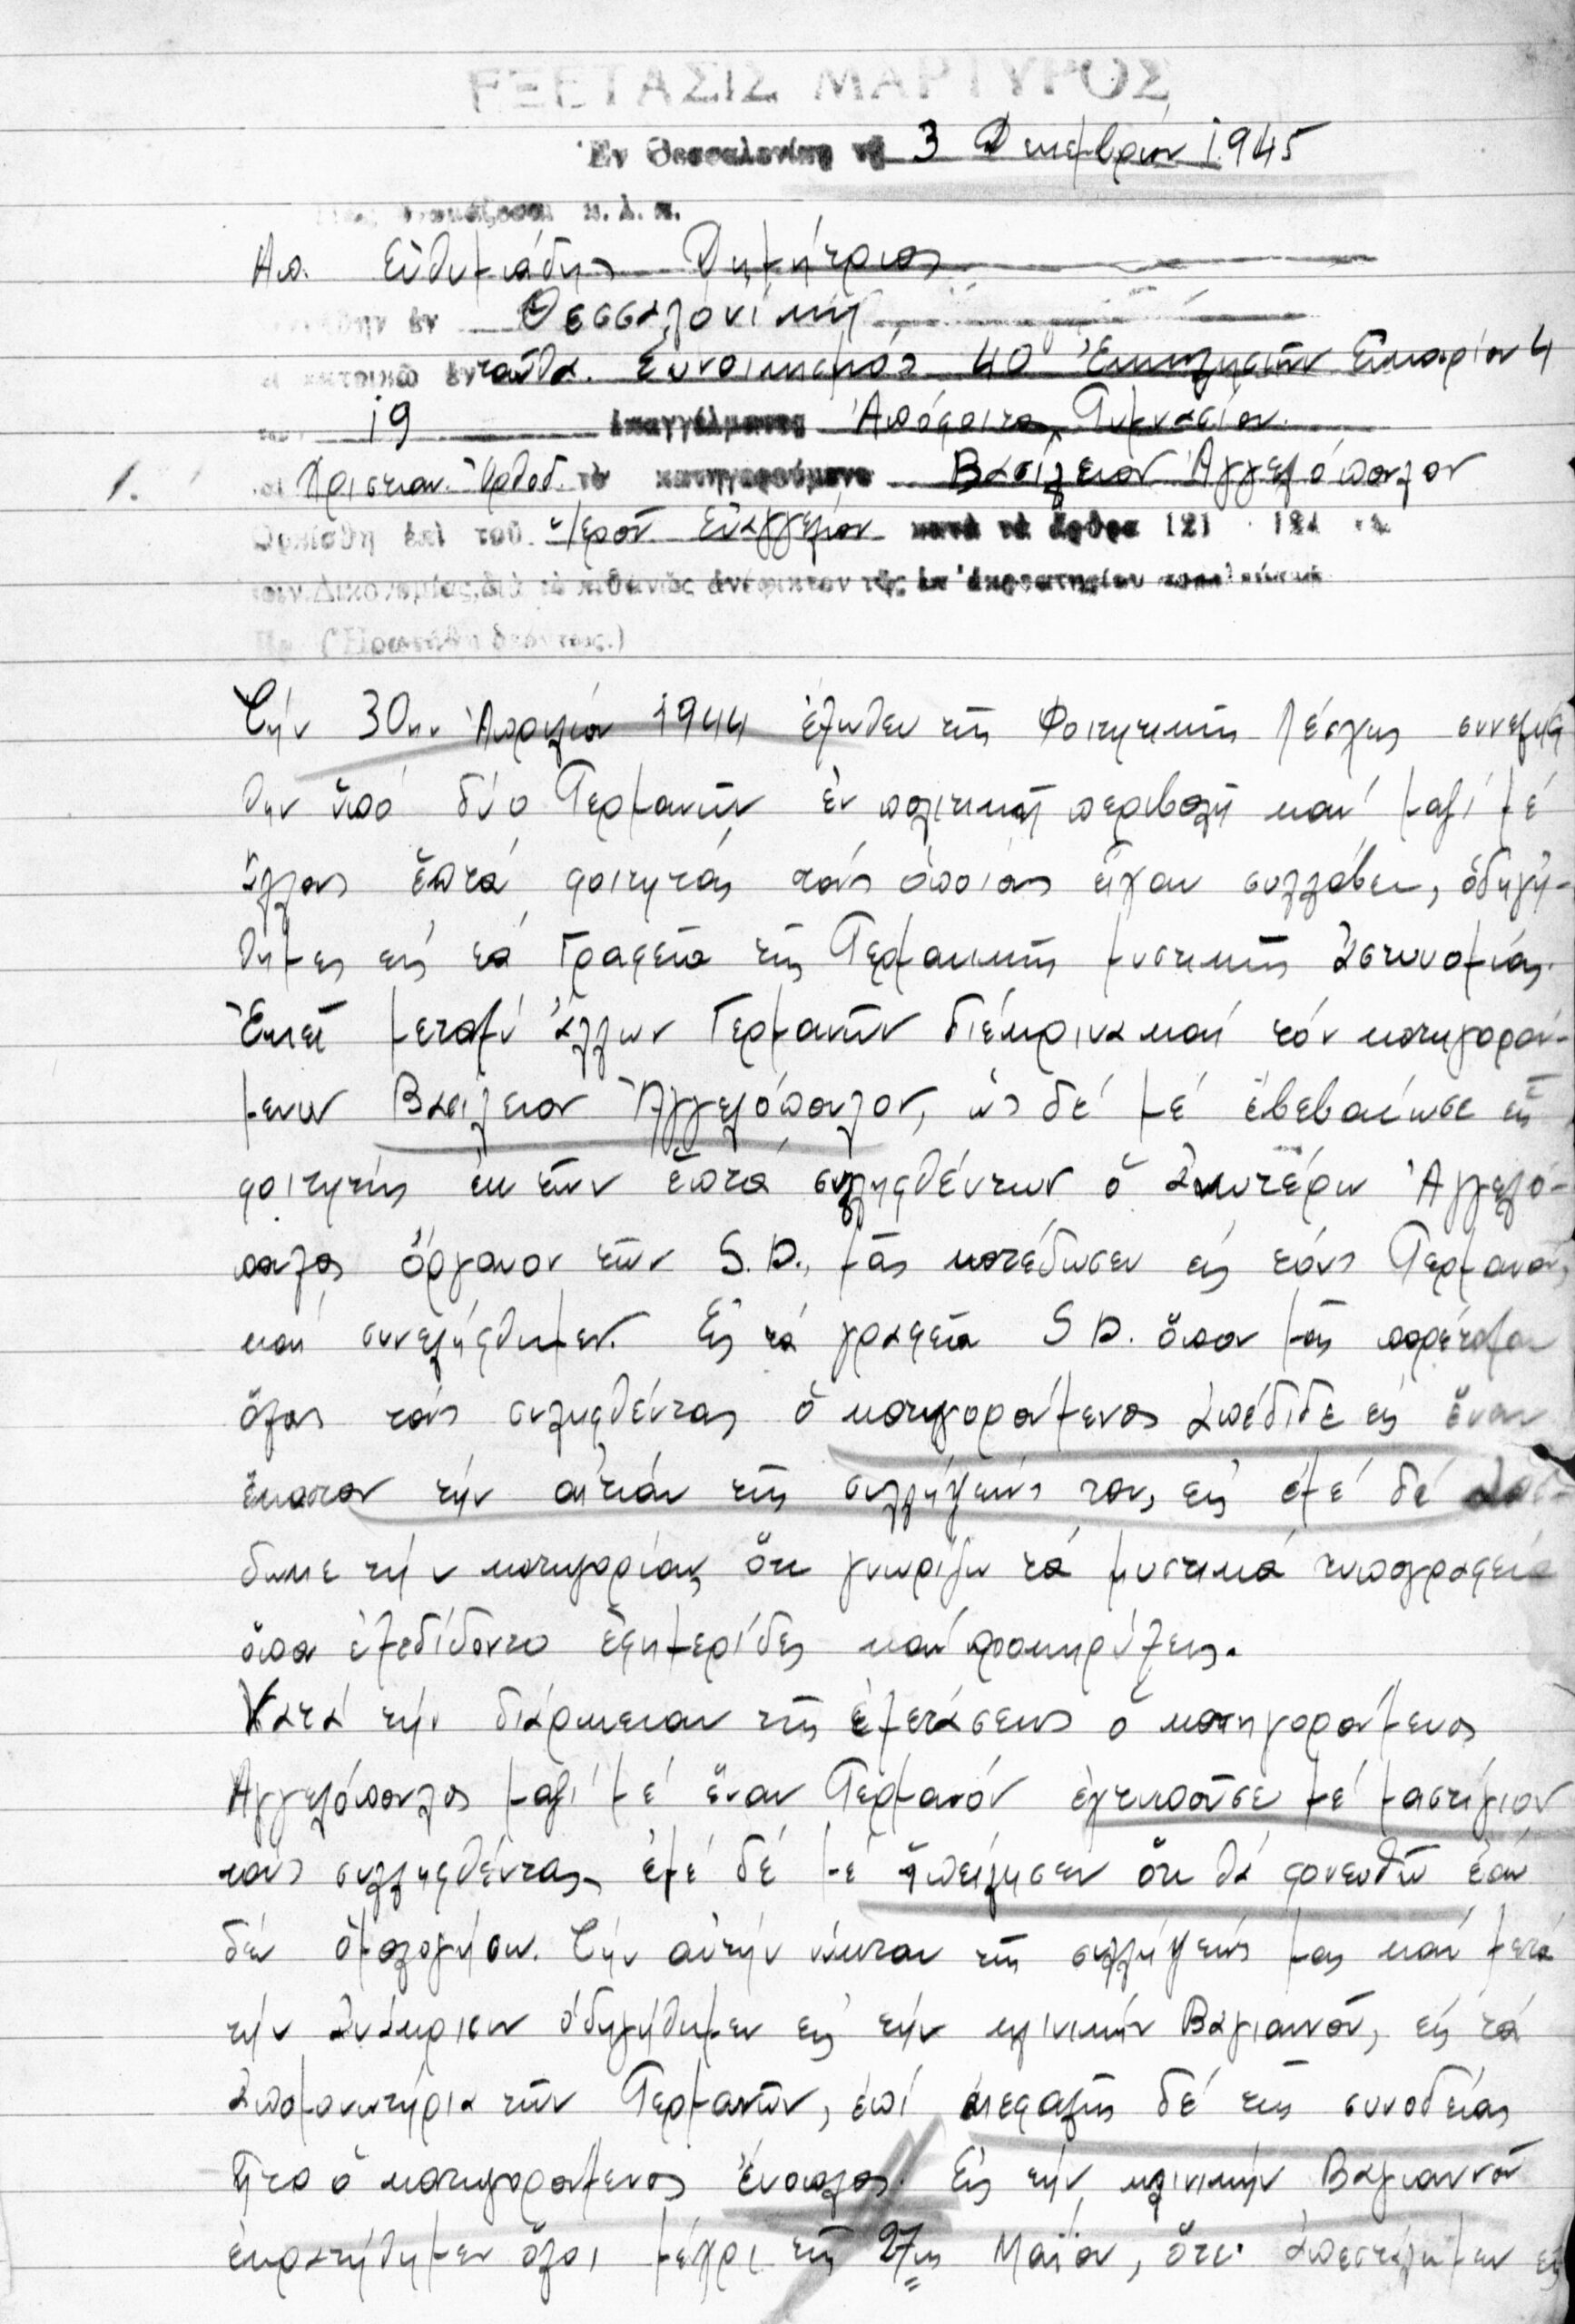 ΕΞΕΤΑΣΙΣ ΜΑΡΤΥΡΟΣ
Ἐν Θεσσαλονίκῃ τῇ 3 Δεκεμβρίου 1945
κ. λ. π.
Ἀπ. Εὐθυμιάδης Δημήτριος
ἐν Θεσσαλονίκῃ
κατοικῶ ἐνταῦθα. Συνοικισμός 40 Ἐκκλησιῶν Εὐκαρίου 4
19 ἐπαγγέλματος Ἀπόφοιτος Γυμνασίου.
1. Χριστιαν. Ὀρθόδ. τὸ κατηγορούμενο Βασίλειον Ἀγγελόπουλον
Ὡρκίσθη ἐπὶ τοῦ Ἱεροῦ Εὐαγγελίου κατὰ τὰ ἄρθρα 121
Δικονομίας, διὰ τὸ πιθανῶς ἀνέφικτον τῆς ἐπ' ἀκροατηρίου
Τήν 30ην Ἀπριλίου 1944 ἔξωθεν τῆς Φοιτητικῆς Λέσχης συνελήφ
θην ὑπό δύο Γερμανῶν ἐν πολιτικῇ περιβολῇ καί μαζί μέ
ἄλλους ἑπτά φοιτητάς τούς ὁποίους εἶχαν συλλάβει, ὁδηγή-
θημεν εἰς τά Γραφεῖα τῆς Γερμανικῆς μυστικῆς ἀστυνομίας.
Ἐκεῖ μεταξύ ἄλλων Γερμανῶν διέκρινα καί τόν κατηγορού-
μενον Βασίλειον Ἀγγελόπουλον, ὡς δέ μέ ἐβεβαίωσε εἷς
φοιτητής ἐκ τῶν ἑπτά συλληφθέντων ὁ ἀνωτέρω Ἀγγελό-
πουλος ὄργανον τῶν S.D., μᾶς κατέδωσεν εἰς τούς Γερμανούς
καί συνελήφθημεν. Εἰς τά γραφεῖα S D. ὅπου μᾶς παρέταξαν
ὅλους τούς συλληφθέντας ὁ κατηγορούμενος ἀπέδιδε εἰς ἕναν
ἕκαστον τήν αἰτίαν τῆς συλλήψεώς του, εἰς ἐμέ δέ ἀπέ-
δωκε τήν κατηγορίαν, ὅτι γνωρίζω τά μυστικά τυπογραφεῖα
ὅπου ἐξεδίδοντο ἐφημερίδες καί προκηρύξεις.
Κατά τήν διάρκειαν τῆς ἐξετάσεως ὁ κατηγορούμενος
Ἀγγελόπουλος μαζί μέ ἕναν Γερμανόν ἐχτυποῦσε μέ μαστίγιον
τούς συλληφθέντας, ἐμέ δέ μέ ἠπείλησεν ὅτι θά φονευθῶ ἐάν
δέν ὁμολογήσω. Τήν αὐτήν νύκταν τῆς συλλήψεώς μας καί μετά
τήν ἀνάκρισιν ὁδηγήθημεν εἰς τήν κλινικήν Βαγιανοῦ, εἰς τά
ἀπομονωτήρια τῶν Γερμανῶν, ἐπί κεφαλῆς δέ τῆς συνοδείας
ἦτο ὁ κατηγορούμενος ἔνοπλος. Εἰς τήν κλινικήν Βαγιαννοῦ
ἐκρατήθημεν ὅλοι μέχρι τῆς 27ης Μαΐου, ὅτε ἀπεστάλημεν εἰς